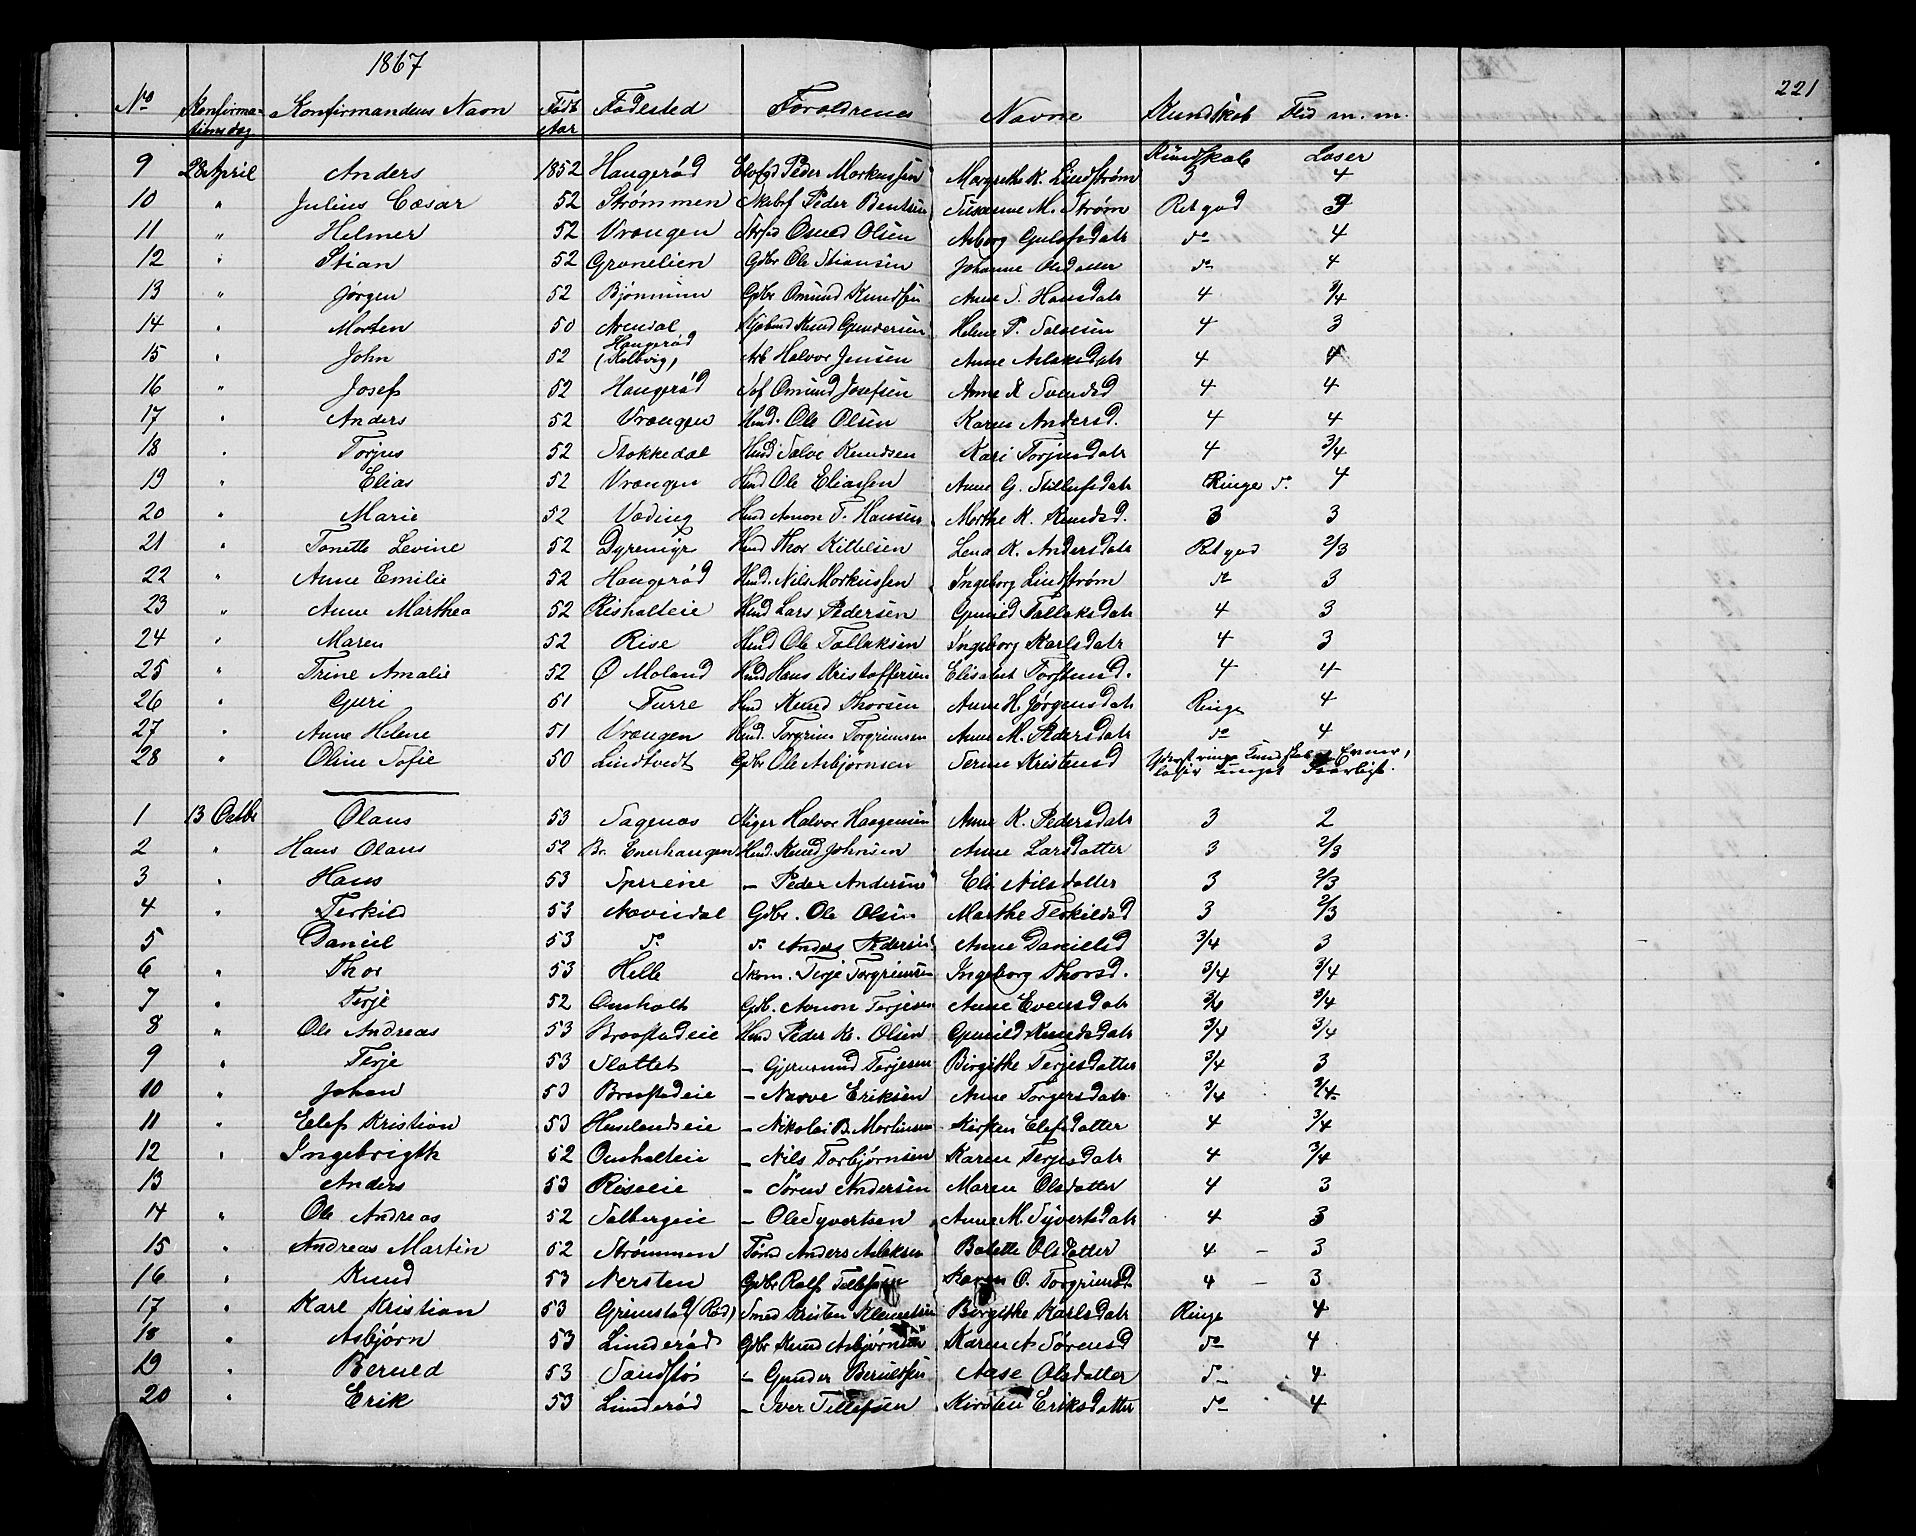 1867
221
No Konfirmationsdag Konfirmandens Navn Født Aar Fødested Forældrenes Navne Kundskab Flid m. m.
Kundskab Læser
9 28 April Anders 1852 Haugerød Peder Markussen Margrethe K. Lindstrøm 3 4
10 " Julius Cæsar 52 Strømmen Peder Bentsen Susanne M. Strøm Ret god 3
11 " Helmer 52 Vrængen Osmund Olsen Asborg Gulofsdatr do 4
12 " Stian 52 Grønelien Gdbr Ole Stiansen Johanne Olsdatter do 4
13 " Jørgen 52 Gdbr Omund Knudsen Anne S. Hansdatr 4 3/4
14 " Morten 50 Arendal Knud Gundersen Helene P. Salvesen 4 3
15 " John 52 Haugerød (Kolbvig) Arb Halvor Jensen Anne Aslaksdatr 4 4
16 " Josef 52 Haugerød Omund Josefsen Anne K Svendsd 4 4
17 " Anders 52 Vrængen Husd. Ole Olsen Karen Andersd. 4 4
18 " Torjus 52 Stokkedal Husd Salve Knudsen Kari Torjusdatr 4 3/4
19 " Elias 52 Vrængen Husd Ole Eliassen Anne G. Ringe do 4
20 " Marie 52 Væding Husd Aanon T. Hansen Marthe K. Knudsd. 3 3
21 " Tonette Levine 52 Dyremyr Husd Thor Kittelsen Lena K. Andersdatr Ret god 2/3
22 " Anne Emilie 52 Haugerød Husd. Nils Markussen Ingeborg Lindstrøm do 3
23 " Anne Marthea 52 Risholteie Husd Lars Pedersen Gunild Tallaksdatr 4 3
24 " Maren 52 Rise Husd Ole Tallaksen Ingeborg Karlsdatr 4 3
25 " Trine Amalie 52 Ø Moland Husd Hans Kristoffersen Elisabet Torstensd. 4 4
26 " Guri 51 Furre Husd Knud Thorsen Anne H. Jørgensdatr Ringe 4
27 " Anne Helene 51 Vrængen Husd. Torgrim Torgrimsen Anne M. Pedersdatr do 4
28 " Oline Sofie 50 Lindtvedt Gdbr Ole Asbjørnsen Terine Kristensd Yderst ringe Kundskab Evner, læser meget daarligt.
1 13 Octbr Olaus 53 Sagenæs Halvor Haagensen Anne K. Pedersdatr 3 2
2 " Hans Olaus 52 Br. Enerhaugen Husd. Knud Johnsen Anne Larsdatter 3 2/3
3 " Hans 53 Sperreine – Peder Andersen Eli Nilsdatter 3 2/3
4 " Terkild 53 Næversdal Gdbr. Ole Olsen Marthe Terkildsd 3 2/3
5 Daniel 53 do do Anders Pedersen Anne Danielsd 3/4 3
6 " Thor 53 Helle Skom. Terje Torgrimsen Ingeborg Thorsd. 3/4 3/4
7 " Terje 52 Omholt Gdb. Aanon Terjesen Anne Evensdatr 3/4 3/4
8 " Ole Andreas 53 Braastadeie Husd Peder K. Olsen Gunild Knudsdatr 3/4 3/4
9 " Terje 53 Slottet – Gjermund Terjesen Birgithe Terjesdatter 3/4 3
10 " Johan 53 Braastadeie – Narve Eriksen Anne Torgersdatr 3/4 3/4
11 " Elef Kristian 53 Huslandseie – Nikolai B. Mortensen Kirsten Elefsdatter 4 3/4
12 " Ingebrigth 52 Omholteie – Nils Torbjørnsen Karen Terjesdatr 4 3/4
13 Anders 53 Riseeie – Søren Andersen Maren Olsdatter 4 3
14 " Ole Andreas 52 Solbergeie – Ole Syvertsen Anne M. Syvertsdatr 4 3
15 " Andreas Martin 52 Strømmen Tørrd Anders Aslaksen Bolette Olsdatter 4 – 3
16 " Knud 53 Nersten Gdbr Rolf Tellefsen Karen O. Torgrimsd 4 – 3
17 " Karl Kristian 53 Grimstad (Rød) Smed Kristen Klemetsen Birgithe Karlsdatr Ringe 4
18 " Asbjørn 53 Linderød Gdbr Knud Asbjørnsen Karen A. Sørensd do 4
19 " Beruld 53 Sandstøs – Gunder Beruldsen Aase Olsdatter do 4
20 " Erik 53 Linderød – Iver Tellefsen Kirsten Eriksdatter do 4